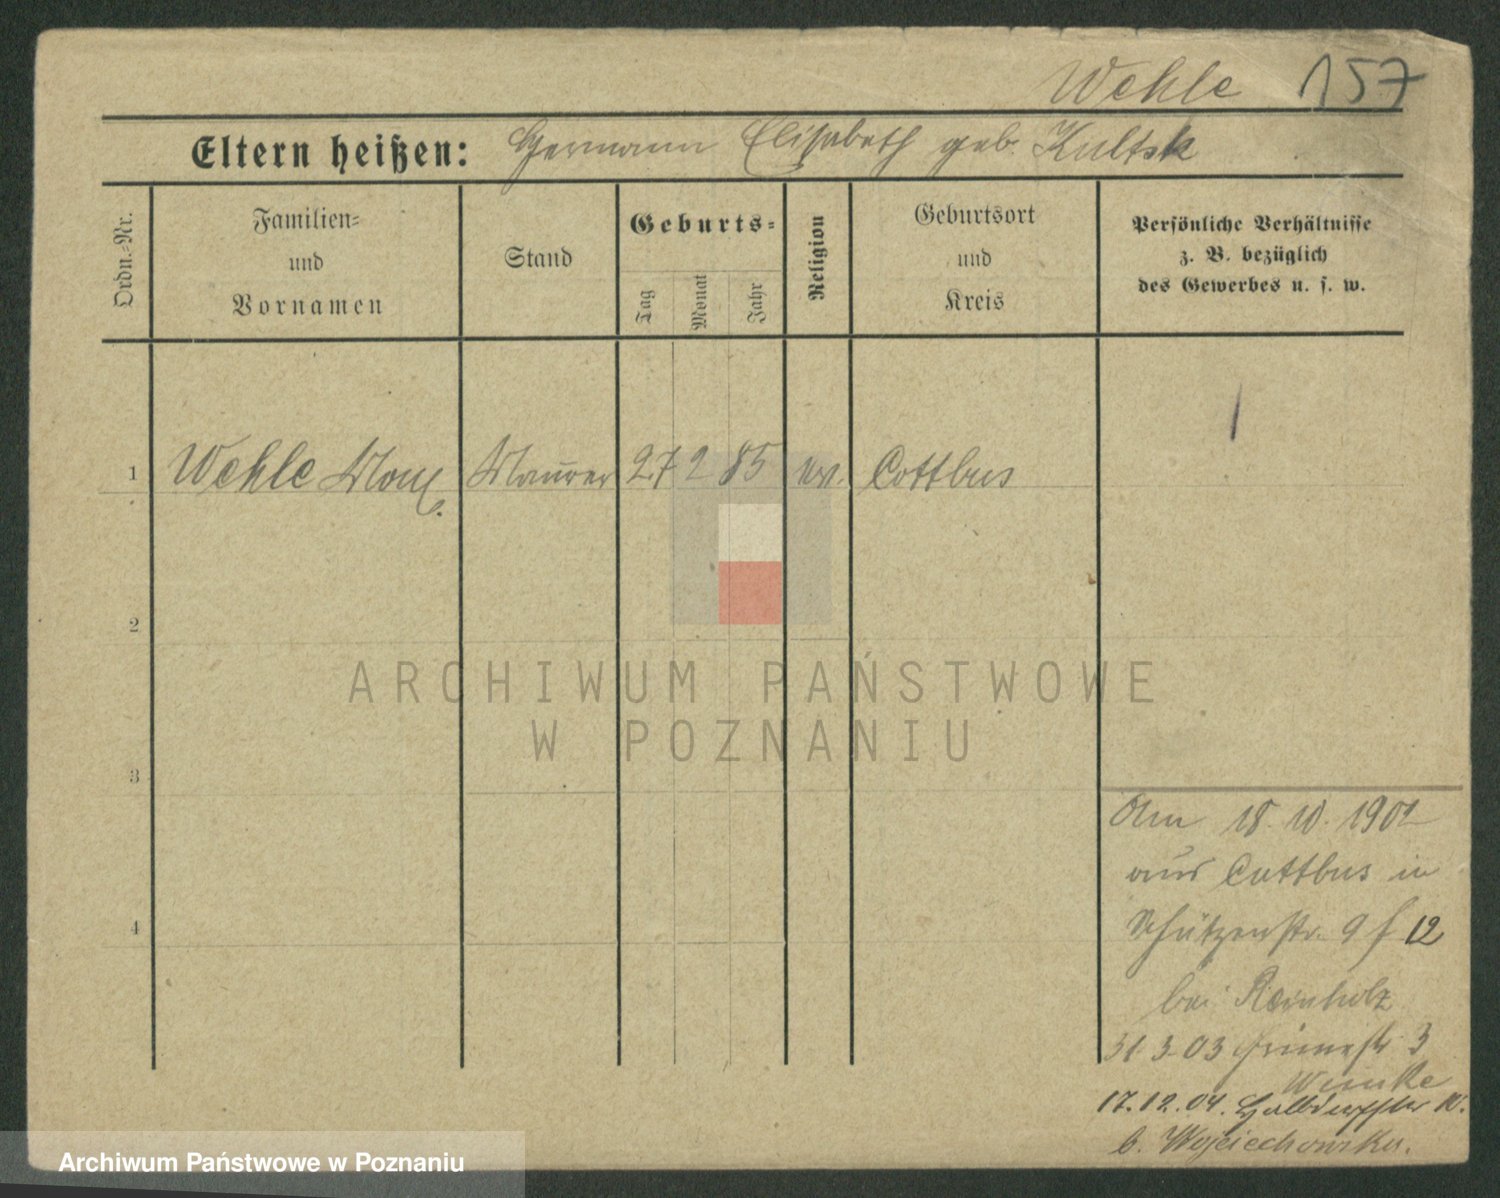 Wehle 157
Eltern heißen: Hermann Elisabeth geb. Kultsk
Ordn.-Nr.
Familien-
und
Vornamen
Stand
Geburts-
Tag
Monat
Jahr
Religion
Geburtsort
und
Kreis
Persönliche Verhältnisse
z. B. bezüglich
des Gewerbes u. s. w.
1 Wehle Max Maurer 27 2 85 ev. Cottbus
2
3
4
ARCHIWUM PAŃSTWOWE
W POZNANIU
Am 18. 10. 1901
aus Cottbus in
Schützenstr. 9 f 12
bei Reinholz
31 3 03 3
17.12.04. Halbdorfstr
b. Wojciechowska.
Archiwum Państwowe w Poznaniu